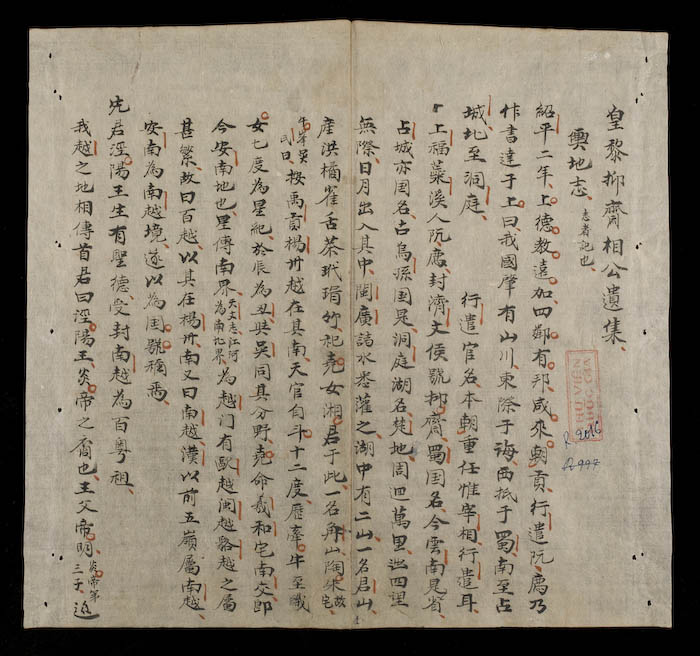 皇黎抑齋相公遺集、
輿地志、志者記也、
紹平二年、上德教遠加四鄰有邦咸來朝貢、行遣阮廌乃
作書達于上曰、我國肇有山川東際于海西抵于蜀南至占
城北至洞庭 行遣官名本朝重任惟宰相行遣耳
上福蘂溪人阮廌封濟文侯號抑齋蜀国名今雲南見省
占城亦国名占烏孫国是洞庭湖名楚地周迴萬里四望
無際日月出入其中閩廣諸水悉灌之湖中有二山一名君山
產洪橘雀舌茶玳瑁竹祀堯女湘君于此一名舜山陶朱故宅
午峯吳氏曰按禹貢楊州越在其南天官自斗十二度歷牽牛至織
女七度為星紀於辰為丑與吳同其分野堯命羲和宅南交即
今安南地也星傳南界天文志江河為南北界為越门有甌越闽越駱越之屬
甚繁故曰百越以其在楊州南又曰南越漢以前五嶺屬南越
安南為南越境遂以為国號稱焉
先君涇陽王生有聖德受封南越為百粤祖
我越之地相傳首君曰涇陽王炎帝之裔也王父帝明炎帝第三子巡
THƯ VIỆN
QUỐC GIA
R.2016